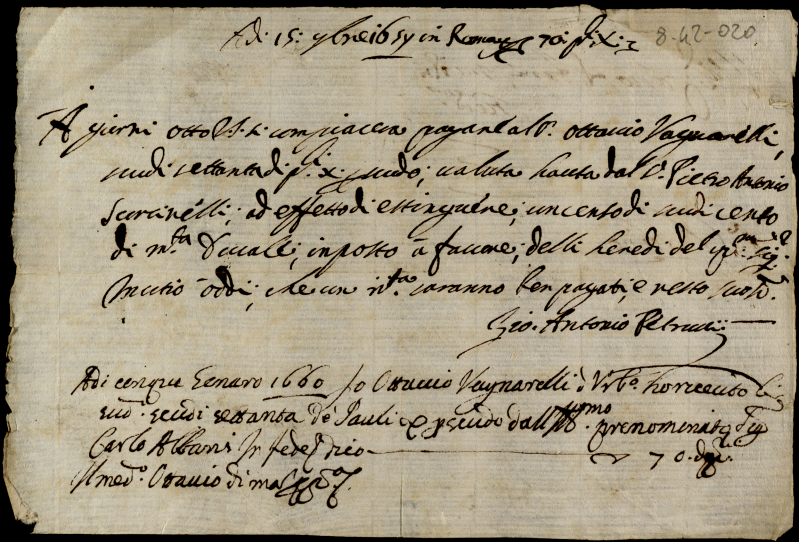 Adi 15: 9bre 1659 in Roma 70: p. X:
8-42-020
A giorni otto V.S. si compiaccia pagare al Sr. Ottavio Vagnarelli,
scudi settanta di p. X. scudo; valuta hauta dal Sr. Pietro Antonio
Scarinelli; ad effetto di estinguere; un censo di scudi cento
di mta Ducale; inposto à favore; delli heredi del qm Sig.r
Mutio oddi; che con rta saranno ben pagati, e resto suo
Gio. Antonio Petrucci
Adi cinque Genaro 1660 Io Ottavio Vagnarelli d Urbo ho riceuto li
sud. scudi settanta de Pauli X p scudo dall Illmo prenominato Sig
Carlo Albani In fede dico 70. di
Il med.o Ottavio di ma ppa